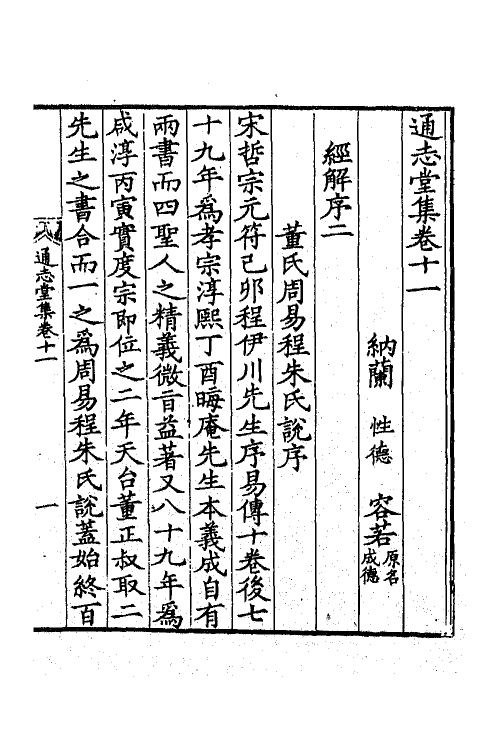 通志堂集卷十一
納蘭 性德 容若原名成德
經解序二
董氏周易程朱氏說序
宋哲宗元符己卯程伊川先生序易傳十卷後七
十九年為孝宗淳熙丁酉晦庵先生本義成自有
兩書而四聖人之精義微旨益著又八十九年為
咸淳丙寅實度宗即位之二年天台董正叔取二
先生之書合而一之為周易程朱氏說蓋始終百
通志堂集卷十一 一